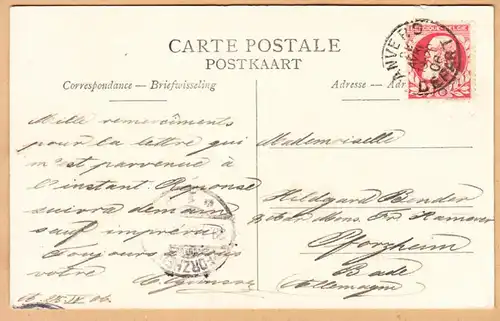 CARTE POSTALE
POSTKAART
Correspondance — Briefwisseling
Adresse — Adr
Mille remercîments
pour la lettre qui
m'est parvenue à
l'instant. Réponse
suivra demain
sauf imprévu
Toujours
votre
Mademoiselle
Hildgard Bender
Pforzheim
Bade
Allemagne
ANVERS
DEPART